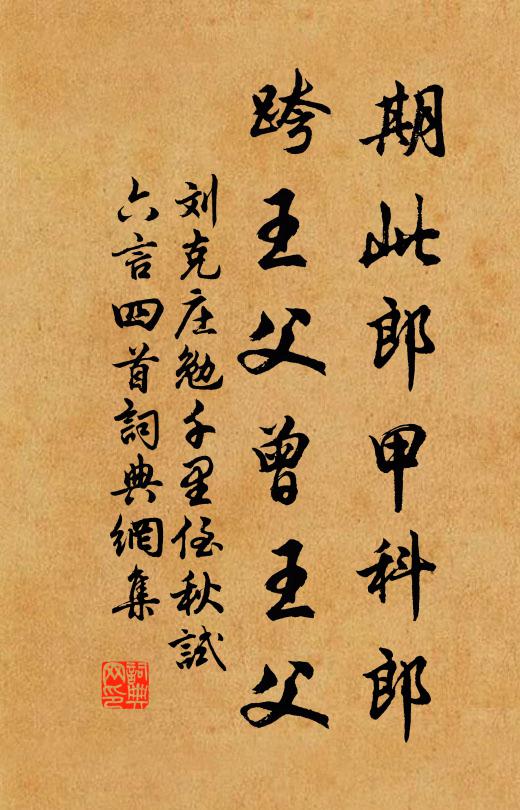 期此郎甲科郎
跨王父曾王父
刘克庄勉千里侄秋試
六言四首詞典網集
詞典网印